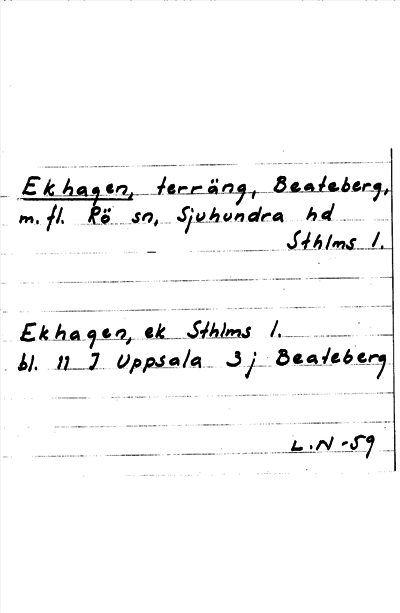 Ekhagen, terräng, Beateberg,
m. fl. Rö sn, Sjuhundra hd
Sthlms l.
Ekhagen, ek Sthlms l.
bl. 11 I Uppsala 3 j Beateberg
L.N -59